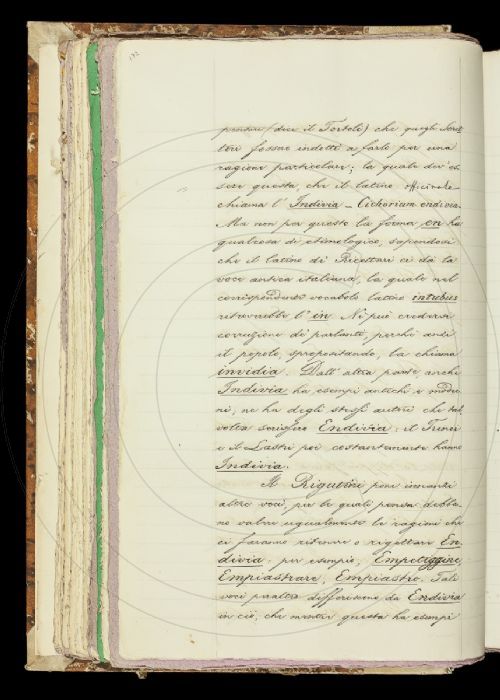 172
pensare (dice il Tortoli) che quegli Scrit-
tori fossero indotti a farlo per una
ragione particolare; la quale dev'es-
sere questa, che il latino officinale
chiama l'Indivia - Cichorium endivia.
Ma non per questo la forma en ha
qualcosa di etimologico, sapendosi
che il latino di Ricettari ci dà la
voce antica italiana, la quale nel
corrispondente vocabolo latino intubus
ritroverebbe l'in. Nè può credersi
corruzione di parlanti, perchè anzi
il popolo, spropositando, la chiama
invidia. Dall'altra parte anche
Indivia ha esempi antichi e moder-
ni; ne ha degli stessi autori che tal-
volta scrissero Endivia: il
e il Lastri poi costantemente hanno
Indivia.
Il Rigutini pone innanzi
altre voci, per le quali pensa debba-
no valere ugualmente le ragioni che
ci faranno ritenere o rigettare En-
divia; per esempio, Empetiggine,
Empiastrare, Empiastro. Tali
voci peraltro differiscono da Endivia
in ciò, che mentre questa ha esempi